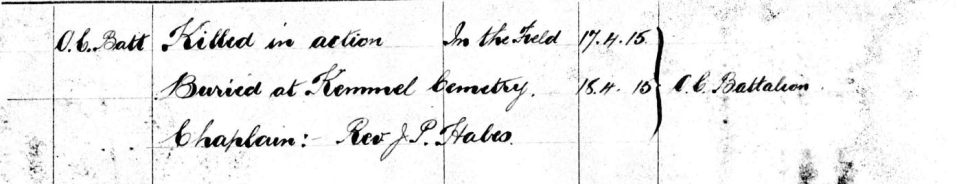 O.C. Batt Killed in action In the Field 17.4.15
Buried at Kemmel Cemetry. 18.4.15 O.C. Battalion
Chaplain:- Rev J. P. Hales.